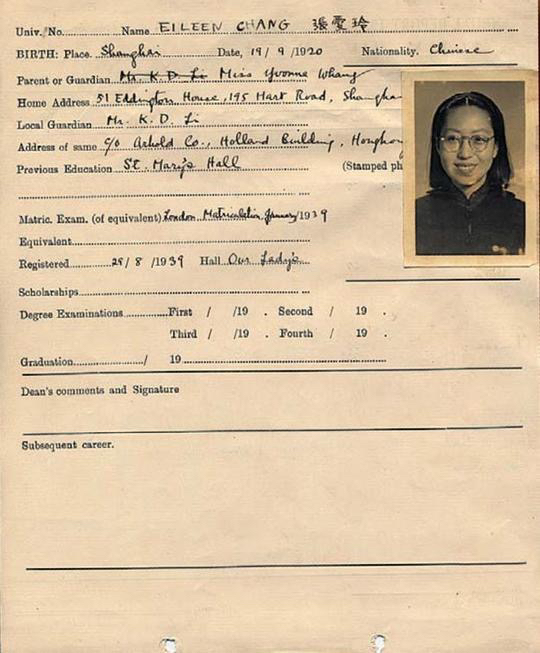 Univ. No. Name EILEEN CHANG 張愛玲
BIRTH: Place. Shanghai Date, 19 / 9 / 1920 Nationality. Chinese
Parent or Guardian Mr. K. D. Li Miss Yvonne Whang
Home Address 51 Eddington House, 195 Hart Road, Shangha
Local Guardian Mr. K. D. Li
Address of same c/o Arhold Co., Holland Building, Hongkong
Previous Education St. Mary's Hall (Stamped ph
Matric. Exam. (of equivalent) London Matriculation, January/1939
Equivalent
Registered 29/ 8 /1939 Hall Our Lady's
Scholarships
Degree Examinations First / /19 . Second / 19 .
Third / /19 . Fourth / 19 .
Graduation / 19
Dean's comments and Signature
Subsequent career.